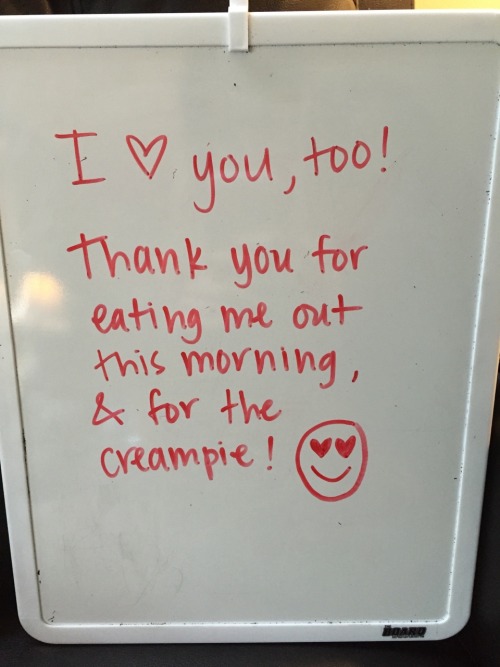 I ♡ you, too!
Thank you for
eating me out
this morning,
& for the
creampie!
THE BOARD DUDES